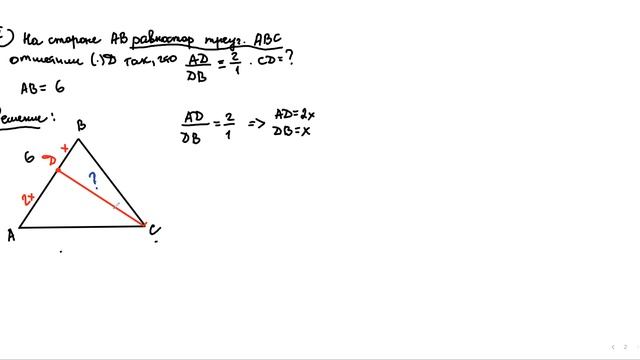 На стороне AB равностор треуг. ABC
отметили (.)D так, что AD/DB = 2/1 . CD = ?
AB = 6
Решение:
AD/DB = 2/1 => AD = 2x
DB = x
B
6 D x
?
2x
A C
< 2